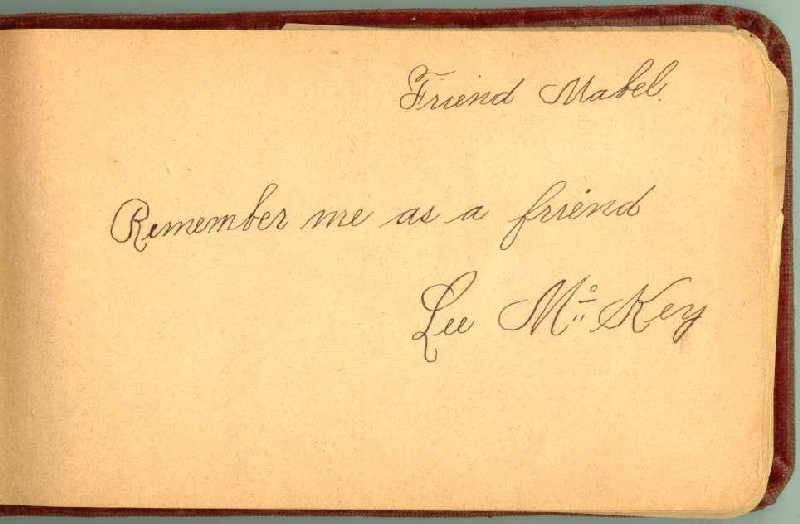 Friend Mabel.
Remember me as a friend
Lee Mc Key